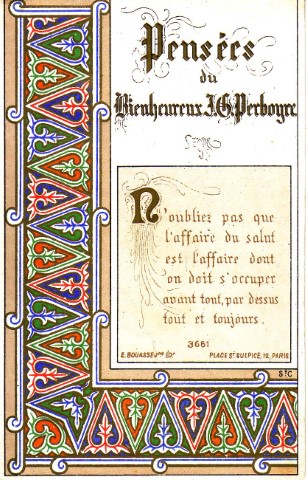 Pensées
du
Bienheureux J. G. Perboyre
N'oubliez pas que
l'affaire du salut
est l'affaire dont
on doit s'occuper
avant tout, par dessus
tout et toujours.
3661
E. BOUASSE Jne ÉDr PLACE St SULPICE, 12, PARIS
StC